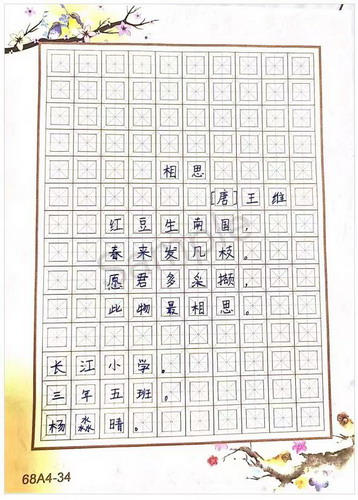 相思
[唐]王维
红豆生南国，
春来发几枝。
愿君多采撷，
此物最相思。
长江小学。
三年五班。
杨淼晴。
68A4-34